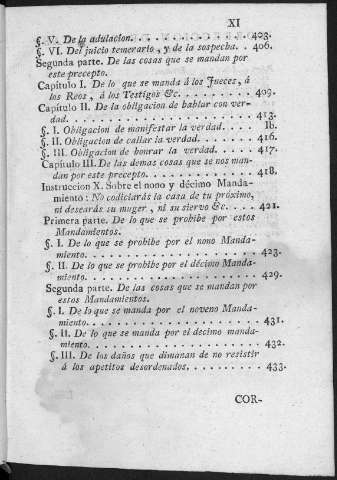 XI
§. V. De la adulacion. . . . . . . . . . . . . . . . . . 403.
§. VI. Del juicio temerario, y de la sospecha. . 406.
Segunda parte. De las cosas que se mandan por
este precepto.
Capítulo I. De lo que se manda á los Jueces, á
los Reos, á los Testigos &c. . . . . . . . . . . . 409.
Capítulo II. De la obligacion de hablar con ver-
dad. . . . . . . . . . . . . . . . . . . . . . . . . . . 413.
§. I. Obligacion de manifestar la verdad. . . . . Ib.
§. II. Obligacion de callar la verdad. . . . . . . 416.
§. III. Obligacion de honrar la verdad. . . . . . 417.
Capítulo III. De las demas cosas que se nos man-
dan por este precepto. . . . . . . . . . . . . . . . 418.
Instruccion X. Sobre el nono y décimo Manda-
miento: No codiciarás la casa de tu próximo,
ni desearás su muger, ni su siervo &c. . . . . 421.
Primera parte. De lo que se prohibe por estos
Mandamientos.
§. I. De lo que se prohibe por el nono Manda-
miento. . . . . . . . . . . . . . . . . . . . . . . . . 423.
§. II. De lo que se prohibe por el décimo Manda-
miento. . . . . . . . . . . . . . . . . . . . . . . . . 429.
Segunda parte. De las cosas que se mandan por
estos Mandamientos.
§. I. De lo que se manda por el noveno Manda-
miento. . . . . . . . . . . . . . . . . . . . . . . . . 431.
§. II. De lo que se manda por el decimo manda-
miento. . . . . . . . . . . . . . . . . . . . . . . . . 432.
§. III. De los daños que dimanan de no resistir
á los apetitos desordenados. . . . . . . . . . . . 433.
COR-